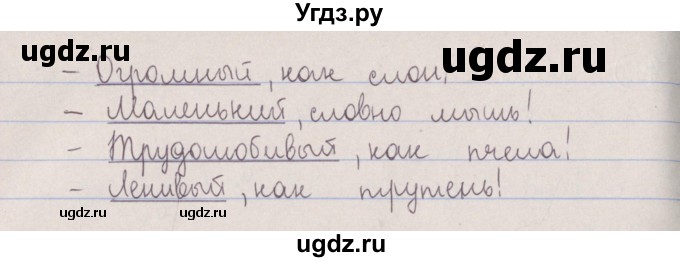 Угдз.ру
ugdz.ru ugdz.ru
– Огромный, как слон,
ugdz.ru
– Маленький, словно мышь!
– Трудолюбивый, как пчела!
– Ленивый, как трутень!
ugdz.ru ugdz.ru
ugdz.ru